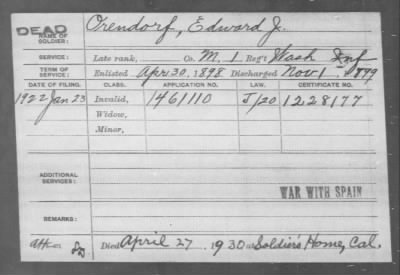 DEAD
NAME OF SOLDIER: Orendorf, Edward J.
SERVICE: Late rank, Co. M. 1 Reg't Wash Inf
TERM OF SERVICE: Enlisted Apr. 30, 1898 Discharged Nov 1 1899
DATE OF FILING. CLASS. APPLICATION NO. LAW. CERTIFICATE NO.
1922 Jan 23 Invalid, 1461110 J/20 1228177
Widow,
Minor,
ADDITIONAL SERVICES:
WAR WITH SPAIN
REMARKS:
Died April 27 1930 at Soldier's Home, Cal.